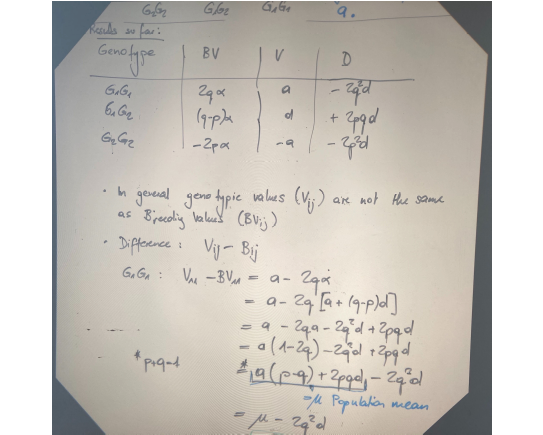 G₂G₂ G₁G₂ G₁G₁ a.
Results so far:
Genotype BV V D
G₁G₁ 2qα a - 2q²d
G₁G₂ (q-p)α d + 2pqd
G₂G₂ -2pα -a - 2p²d
• In general genotypic values (Vij) are not the same
as Breeding Values (BVij)
• Difference: Vij - Bij
G₁G₁: V₁₁ - BV₁₁ = a - 2qα
= a - 2q [a + (q-p)d]
= a - 2qa - 2q²d + 2pqd
= a (1-2q) - 2q²d + 2pqd
* p+q=1
*= a (p-q) + 2pqd - 2q²d
=μ Population mean
= μ - 2q²d